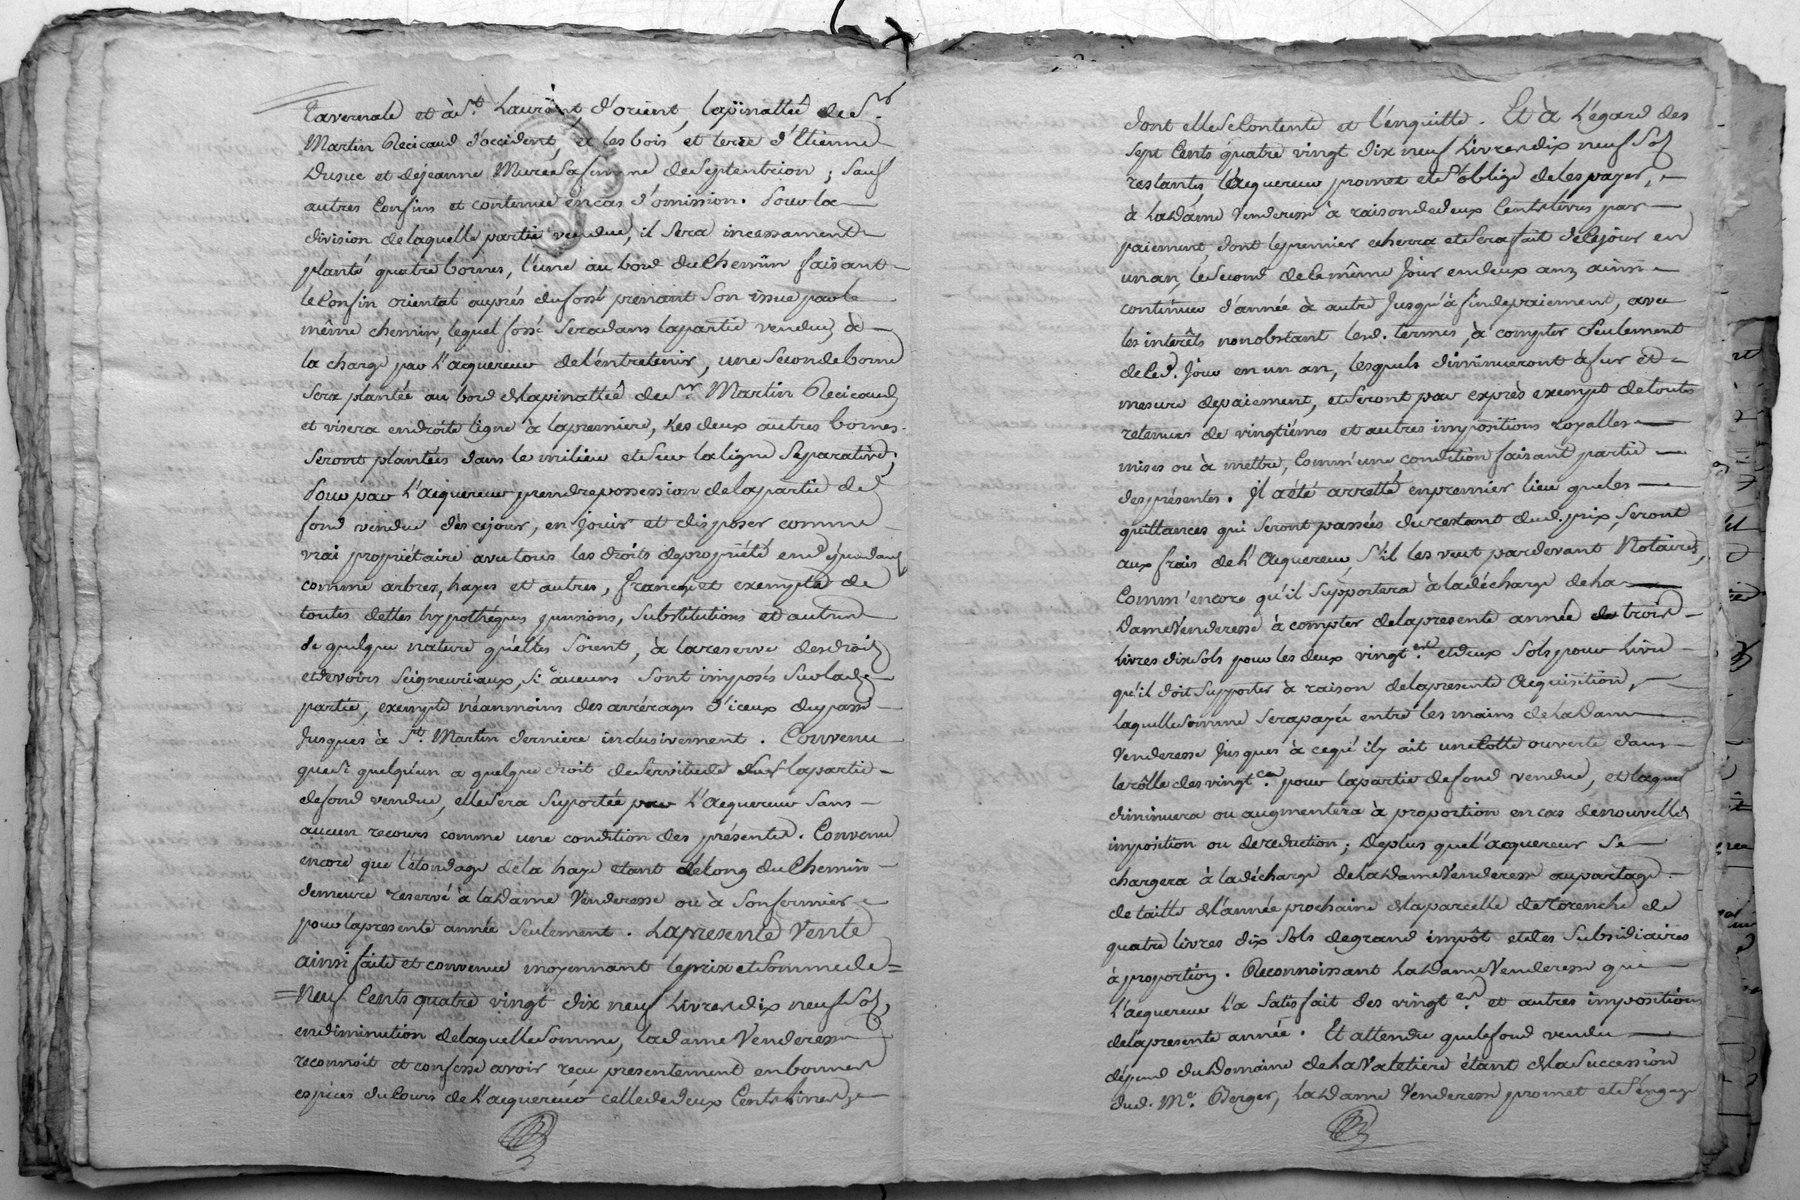 tavernale et à St. Laurent, d'orient, lapinattée de Sr.
Martin Recicaud d'occident, et les bois et terre d'Etienne
Dusuc et dejeanne Mure Sa femme de Septentrion ; Sauf
autres Confins et contenue en cas d'omission. Pour la
division de laquelle partie vendue, il Sera incessament
planté quatre bornes, l'une au bord du Chemin faisant
le Confin oriental auprés du fossé prenant Son issue par le
même chemin, lequel fossé Sera dans la partie vendue, à
la charge par l'acquereur de l'entretenir, une Seconde borne
Sera plantée au bord de lapinattée de Sr. Martin Recicaud,
et visera en droite ligne à la premiere, & les deux autres bornes
Seront plantées dans le milieu et Sur la ligne Séparative ;
Pour par l'acquereur prendre possession de la partie de
fond vendue dès ce jour, en jouir et disposer comme
vrai propriétaire avec tous les droits de propriété en dépendans
comme arbres, hayes et autres, franche et exempte de
toutes dettes hypothéques pensions, Substitutions et autres
de quelque nature quelles Soient, à la reserve des droits
et devoirs Seigneuriaux, Si aucuns Sont imposés Sur lade.
partie, exempte néanmoins des arrérages d'iceux du passé
Jusques à St. Martin derniere inclusivement. Convenu
que Si quelqu'un a quelque droit de Servitude Sur la partie
de fond vendue, elle Sera Suportée par l'acquereur Sans
aucun recours comme une condition des présentes. Convenu
encore que l'étondage de la haye etant de long du Chemin
demeure reservé à la Dame Venderesse ou à Son fermier
pour la presente année Seulement. La presente Vente
ainsi faite et convenue moyennant le prix et Somme de =
= Neuf Cents quatre vingt dix neuf Livres dix neuf Sols,
en diminution de laquelle Somme, la dame Venderesse
reconnoit et confesse avoir reçu presentement en bonnes
espices du Cours de l'acquereur celle de deux Cents Livres,
dont elle Se Contente et l'enquitte. Et à l'égard des
Sept Cents quatre vingt dix neuf Livres dix neuf Sols
restantes l'acquereur promet et S'oblige de les payer,
à la Dame Venderesse à raison de deux Cents livres par
paiement, dont le premier echerra et Sera fait de Ce jour en
un an, le Second de le même Jour en deux ans, ainsi
continuer d'année à autre Jusqu'à fin de paiement, avec
les intérêts nonobstant lesd. termes, à compter Seulement
de Ced. Jour en un an, lesquels diminueront à fur et
mesure de paiement, et Seront par exprès exempt de toutes
retenues de vingtièmes et autres impositions royalles
mises ou à mettre, Comm'une condition faisant partie
des présentes. Il a été arretté, en premier lieu que les
quittances qui Seront passées du restant dud. prix, Seront
aux frais de l'Acquereur, S'il les veut pardevant Notaires,
Comm'encore qu'il Supportera à la décharge de la
Dame Venderesse à compter de la presente année de trois
Livres dix Sols pour les deux vingt.es et deux Sols pour Livre
qu'il doit Supporter à raison de la presente Acquisition,
laquelle Somme Sera payée entre les mains de la Dame
Venderesse Jusques à ce qu'il y ait une Cotte ouverte dans
le rôlle des vingt.es pour la partie de fond vendue, et laquel
diminuera ou augmentera à proportion en cas de nouvelle
imposition ou de reduction ; De plus que l'acquereur Se
chargera à la décharge de la Dame Venderesse au partage
de taille de l'année prochaine de la parcelle de Torenche de
quatre livres dix Sols de grand impôt et des Subsidiaires
à proportion. Reconnoissant la Dame Venderesse que
l'acquereur l'a Satisfait des vingt.es et autres impositions
de la presente année. Et attendu que le fond vendu
dépend du Domaine de la Valetiere étant de la Succession
dud. Me. Berger, la Dame Venderesse promet et S'engage